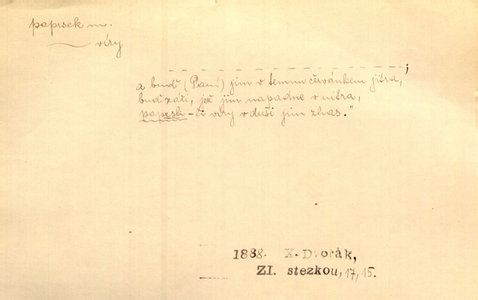 paprsek m.
víry
- - - - - - - - - - - - - - - - - - - - ;
a buď (Paní) jim v temnu červánkem jitra,
buď září, jež jim napadne v nitra,
paprsek-li víry v duši jim zhas."
1888. X. Dvořák,
ZI. stezkou, 17, 15.